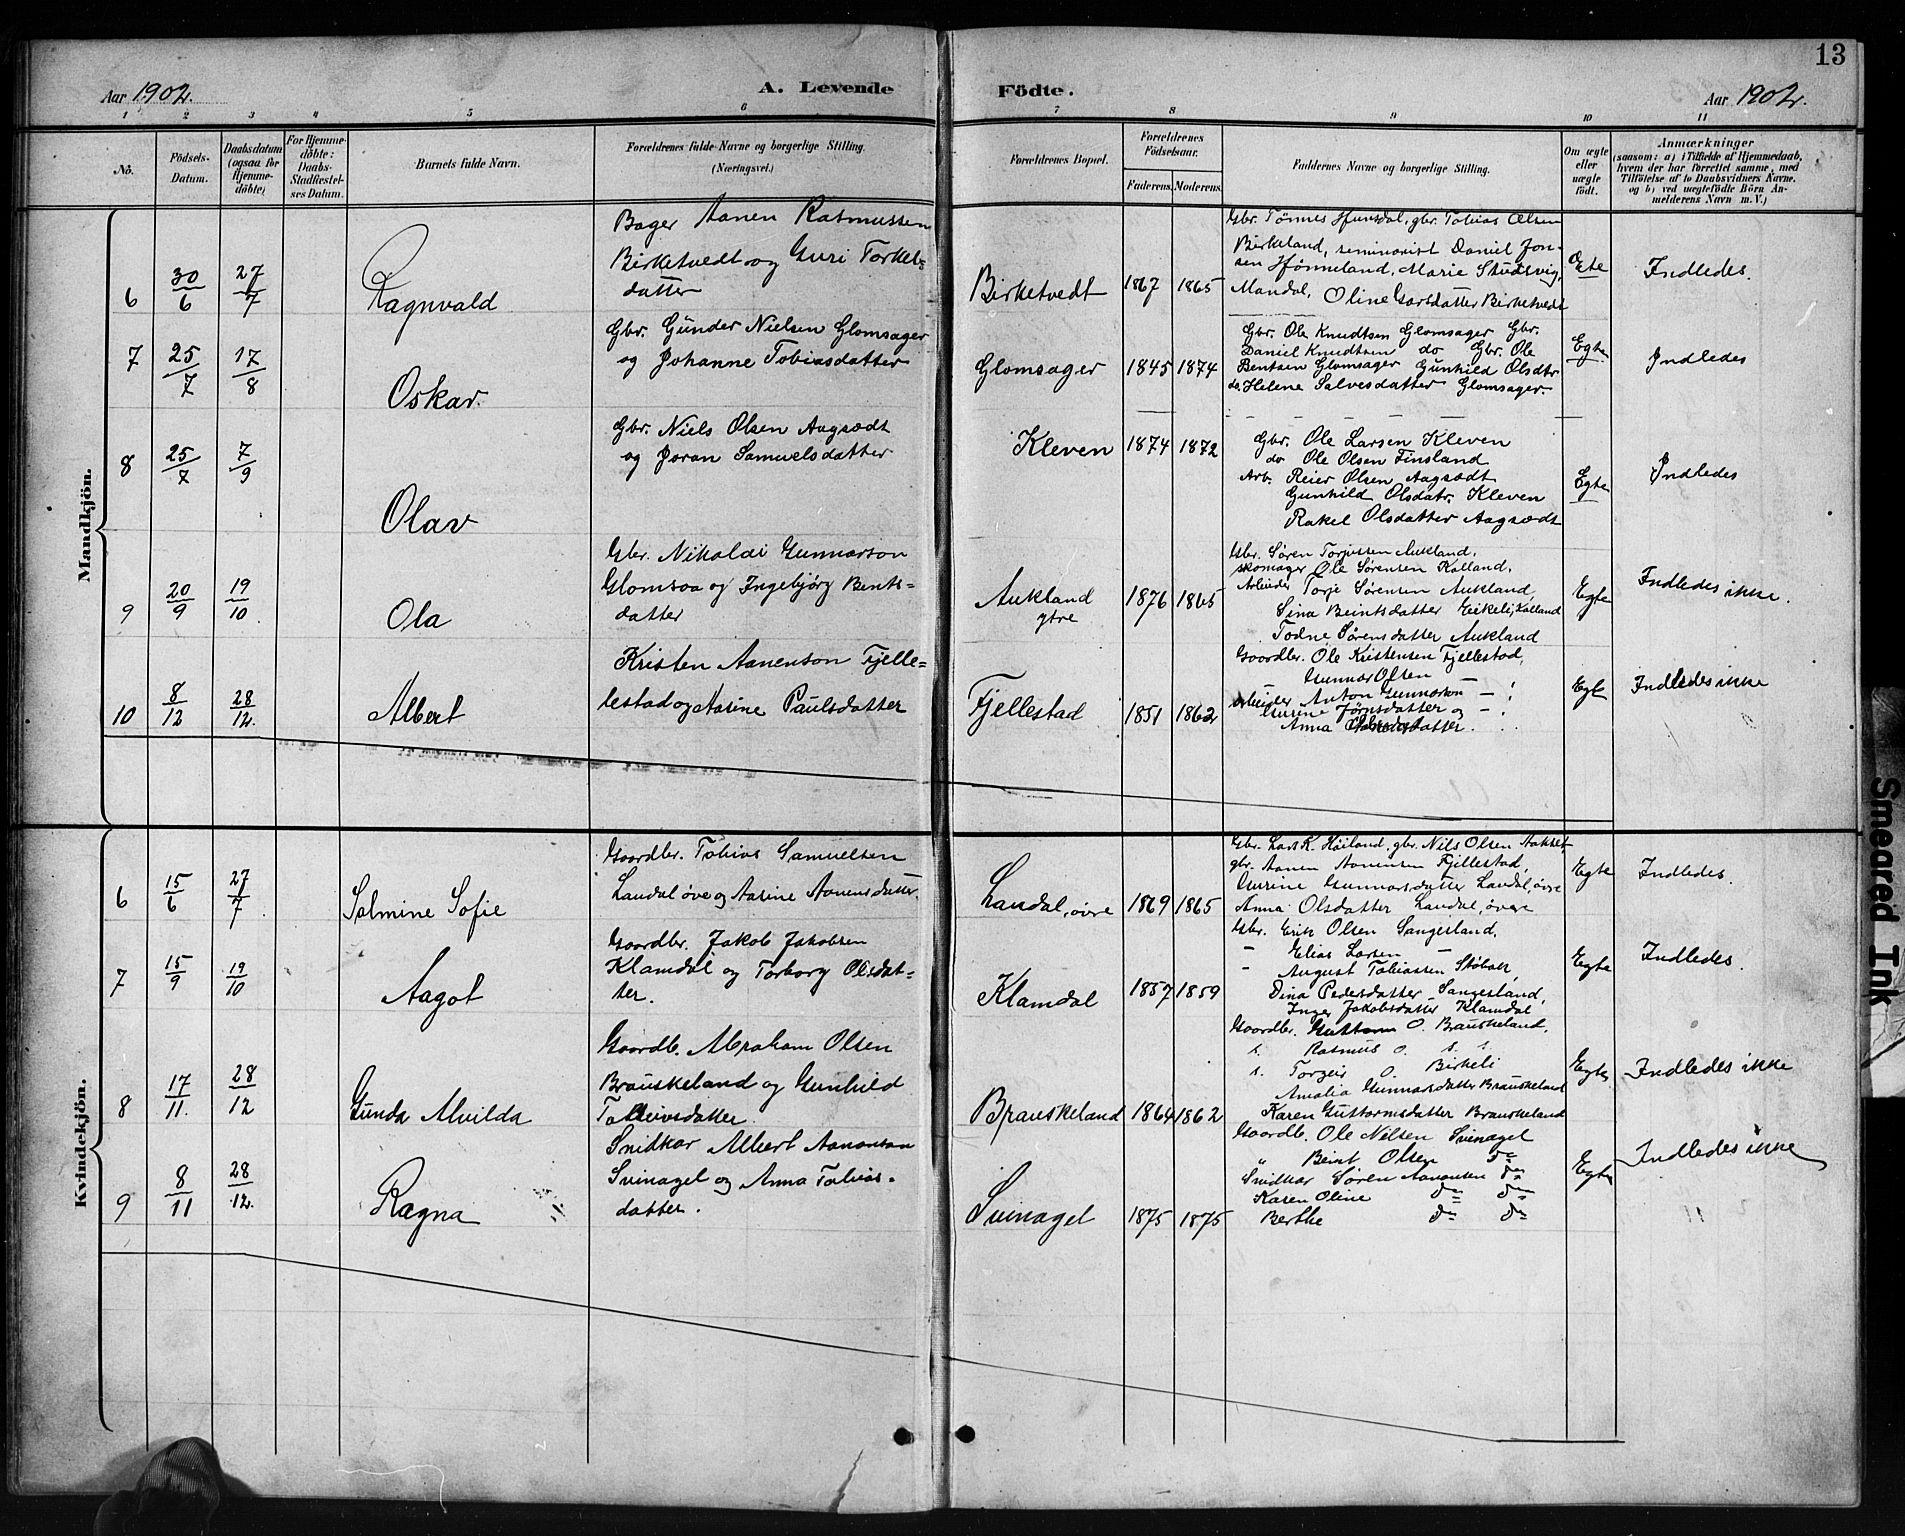 13
Aar 1902.
A. Levende
Födte.
Aar 1902.
1 2 3 4 5 6 7 8 9 10 11
No.
Födsels-
Datum.
Daabsdatum
(ogsaa for
Hjemme-
döbte)
For Hjemme-
döbte:
Daabs-
Stadfæstel-
ses Datum.
Barnets fulde Navn.
Forældrenes fulde Navne og borgerlige Stilling.
(Næringsvei.)
Forældrenes Bopæl.
Forældrenes
Födselsaar.
Faderens. Moderens.
Faddernes Navne og borgerlige Stilling.
Om ægte
eller
uægte
födt.
Anmærkninger
(saasom: a) i Tilfælde af Hjemmedaab,
hvem der har forrettet samme, med
Tilföielse af to Daabsvidners Navne.
og b) ved uægtefödte Börn An-
melderens Navn m. V.)
Mandkjön.
6
30/6
27/7
Ragnvald
Bager Aanen Rasmussen
Birketvedt og Guri Torkels-
datter
Birketvedt
1867 1865
Gbr. Tönnes Hunsdal, gbr. Tobias Olsen
Birkeland, seminarist Daniel Jon-
sen Hönneland, Marie Stusvig,
Mandal, Oline Larsdatter Birketvedt
Ægte
Indledes.
7
25/7
17/8
Oskar.
Gbr. Gunder Nielsen Glomsager
og Johanne Tobiasdatter
Glomsager
1845 1874
Gbr. Ole Knudtsen Glomsager Gbr.
Daniel Knudtsen do Gbr. Ole
Bentsen Glomsager Gunhild Olsdtr
do Helene Salvesdatter Glomsager.
Egte
Indledes
8
25/7
7/9
Olav
Gbr. Niels Olsen Aagsædt
og Joran Samuelsdatter
Kleven
1874 1872
Gbr. Ole Larsen Kleven
do Ole Olsen Finsland
Arb. Reier Olsen Aagsædt
Gunhild Olsdatr. Kleven
Rakel Olsdatter Aagsædt
Egte
Indledes
9
20/9
19/10
Ola
Gbr. Nikolai Gunnarson
Glomsaa og Ingebjörg Bents-
datter
Aukland
ytre
1876 1865
Gbr. Sören Torjussen Aukland,
skomager Ole Sörensen Kalland,
Arbeider Torje Sörensen Aukland,
Sina Beintsdatter Eikeli, Kalland
Todne Sörensdatter Aukland
Egte
Indledes ikke.
10
8/12
28/12.
Albert
Kristen Aanenson Fjelle-
lestad og Aasine Paulsdatter
Fjellestad
1851 1862
Gaardbr. Ole Kristensen Fjellestad,
Gunnar Olsen
arbeider Anton Gunnarson —
Gurine Jörnsdatter og —
Anna datter.
Egte
Indledes ikke
Kvindekjön.
6
15/6
27/7
Salmine Sofie
Gaardbr. Tobias Samuelsen
Landal övre og Aasine Aanensdatter
Landal, övre
1869 1865
Gbr. Lars K. Höiland, gbr. Nils Olsen
gbr. Aanen Aanensen Fjellestad,
Gurine Gunnarsdatter Landal, övre
Anna Olsdatter Landal, övre
Egte
Indledes.
7
15/9
19/10
Aagot
Gaardbr. Jakob Jakobsen
Klamdal og Torborg Olsdat-
ter.
Klamdal
1857 1859
Gbr. Erik Olsen Sangesland.
— Elias Larsen —
— August Tobiassen Stöbak,
Dina Pedersdatter Sangesland,
Inger Jakobsdatter Klamdal
Egte
Indledes.
8
17/11.
28/12
Gunda Alvilda
Gaardb. Abraham Olsen
Brauskeland og Gunhild
Talleivsdatter.
Brauskeland
1864 1862
Gaardbr. Guttorm O. Brauskeland.
Rasmus O.
Torgeir O. Birkeli
Amalia Gunnarsdatter Brauskeland
Karen Guttormsdatter Brauskeland
Egte
Indledes ikke
9
8/11
28/12.
Ragna
Snidkar Albert Aanonson
Svinagel og Anna Tobias-
datter.
Svinagel
1875 1875
Gaardb. Ole Nilsen Svinagel
" Beint Olsen do
Snidkar Sören Aanonsen do
Karen Oline do do
Berthe do do
Egte
Indledes ikke
Smeared Ink